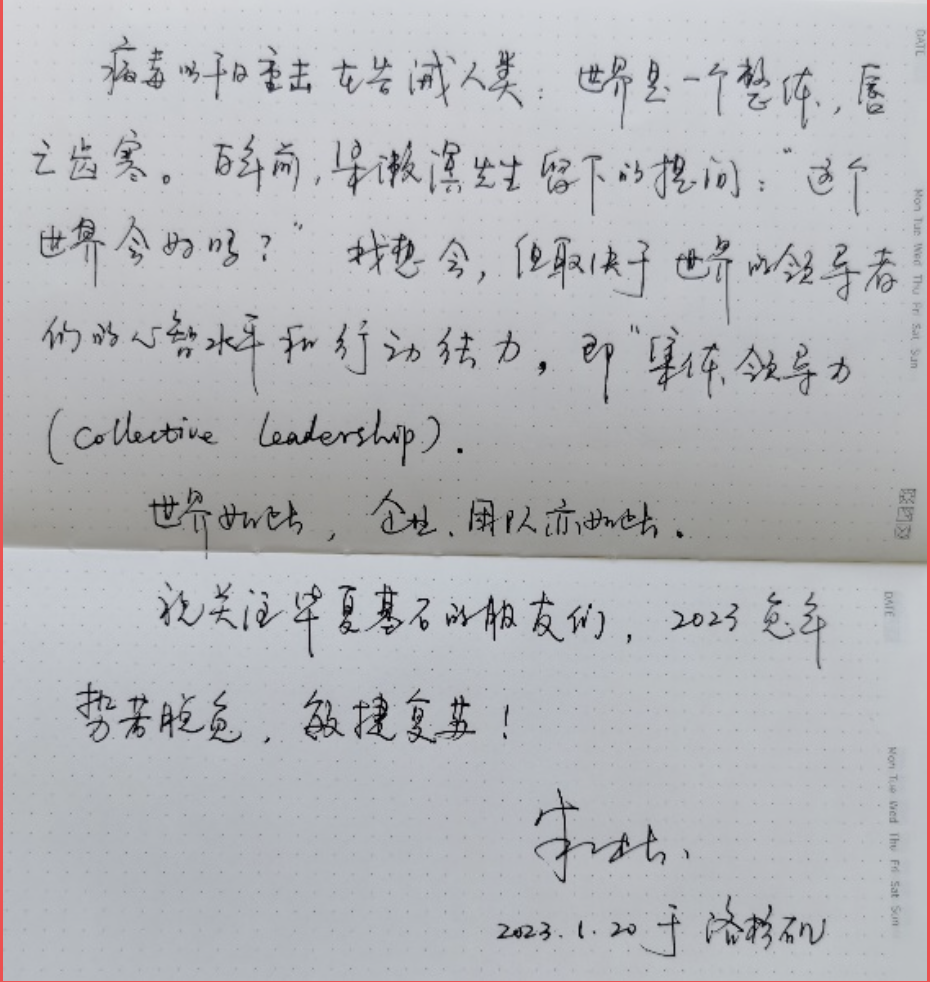 病毒以千日重击在告诫人类：世界是一个整体，唇
亡齿寒。百年前，梁漱溟先生留下的提问："这个
世界会好吗？"我想会，但取决于世界的领导者
们的心智水平和行动结力，即"集体领导力
(Collective Leadership).
世界如此，企业、团队亦如此.
祝关注毕夏基石的朋友们，2023兔年
势若脱兔，敏捷复苏！
2023.1.20 于洛杉矶
DATE
Mon Tue Wed Thu Fri Sat Sun
DATE
Mon Tue Wed Thu Fri Sat Sun